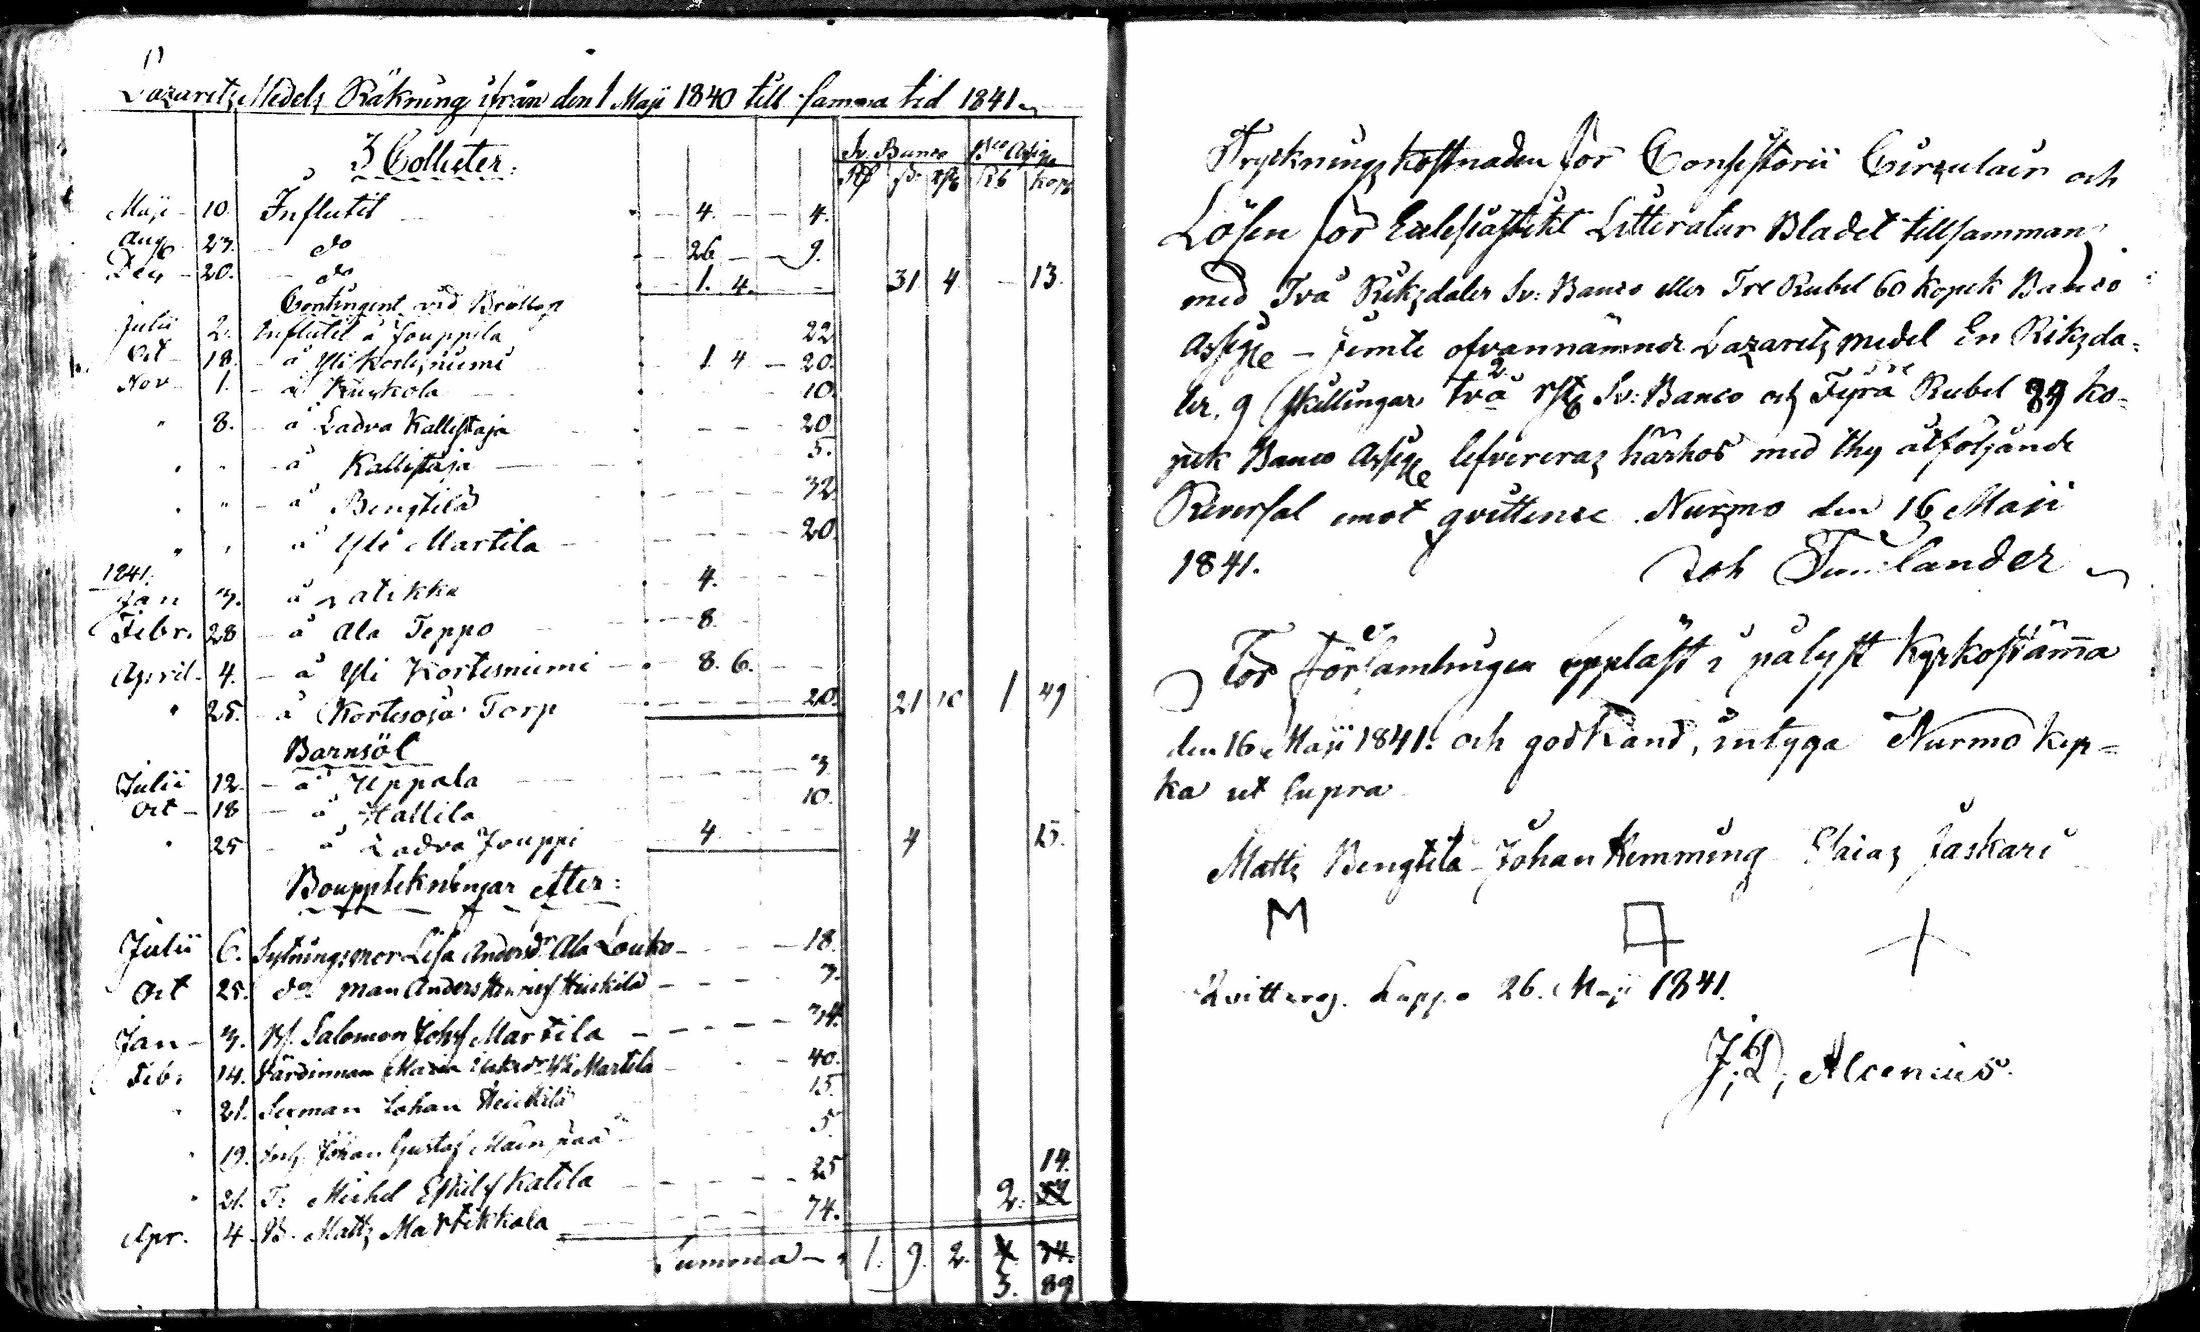 Lazarets Medels Räkning ifrån den 1 Maji 1840 till samma tid 1841
3 Collecter:
Sv. Banco Bco Assigne
Rd s rst Rb kop
Maji 10. Influtit 4. 4.
Aug 27. do 26 9.
Dec 20. do 1. 4. 31 4 13.
Contingent vid Bröllop
Julii 2. Influtit å Jouppila 22
Oct 18. å Yli Kortesniemi 1 4 20.
Nov 1. å Knuskola 10.
" 8. å Ladva Kallistaja 20
" " å Kallistaja 5.
" " å Bengtila 32
" " å Yli Martila 20
1841.
Jan 3. å Latikka 4.
Febr. 28 å Ala Teppo 8.
April 4. å Yli Kortesniemi 8. 6.
" 25. å Kortesoja Torp 20. 21 10 1 49
Barnsöl
Julii 12 å Uppala 3
Oct 18 å Hallila 10.
" 25 å Ladva Jouppi 4. 4 15.
Bouppteckningar efter:
Julii 6. Sytningsmor Lisa Andersdr Ala Louko 18.
Oct 25. do man Anders Henricss Heickilä 3.
Jan 3. Bs. Salomon Johss Martila 34.
Feb. 14. Värdinnan Maria Yli Martila 40.
" 21. Sexman Johan Heickilä 15.
" 19. Johan Gustaf Mäenpää 5
" 21. T: Michel Eskilss Katila 25 14.
Apr. 4 B. Matts Martikkala 74. 2. 37
Summa 1. 9. 2. 4 34.
3. 89
Tryckningskostnaden för Consistorii Circulair och
Lösen för Ecclesiastikt Litteratur Bladet tillsammans
med Två Riksdaler Sv: Banco eller Tre Rubel 60 Kopek Banco
Assigne – jemte ofvannämnde Lazarets medel En Riksda-
ler, 9 skillingar två 2 rst Sv: Banco och Fyra Rubel 89 Ko-
pek Banco Assigne lefvereras härhos med thy åtföljande
Reversal emot qvittence. Nurmo den 16 Maji
1841. Joh
För församlingen uppläst i pålyst Kyrkostämma
den 16 Maji 1841. och godkänd, intyga Nurmo Kyr-
ka ut supra
Matts Bengtila Johan Hemming Esaias Jaskari
Qvitteras. Lappo 26. Maji 1841.
J. D. Alcenius.